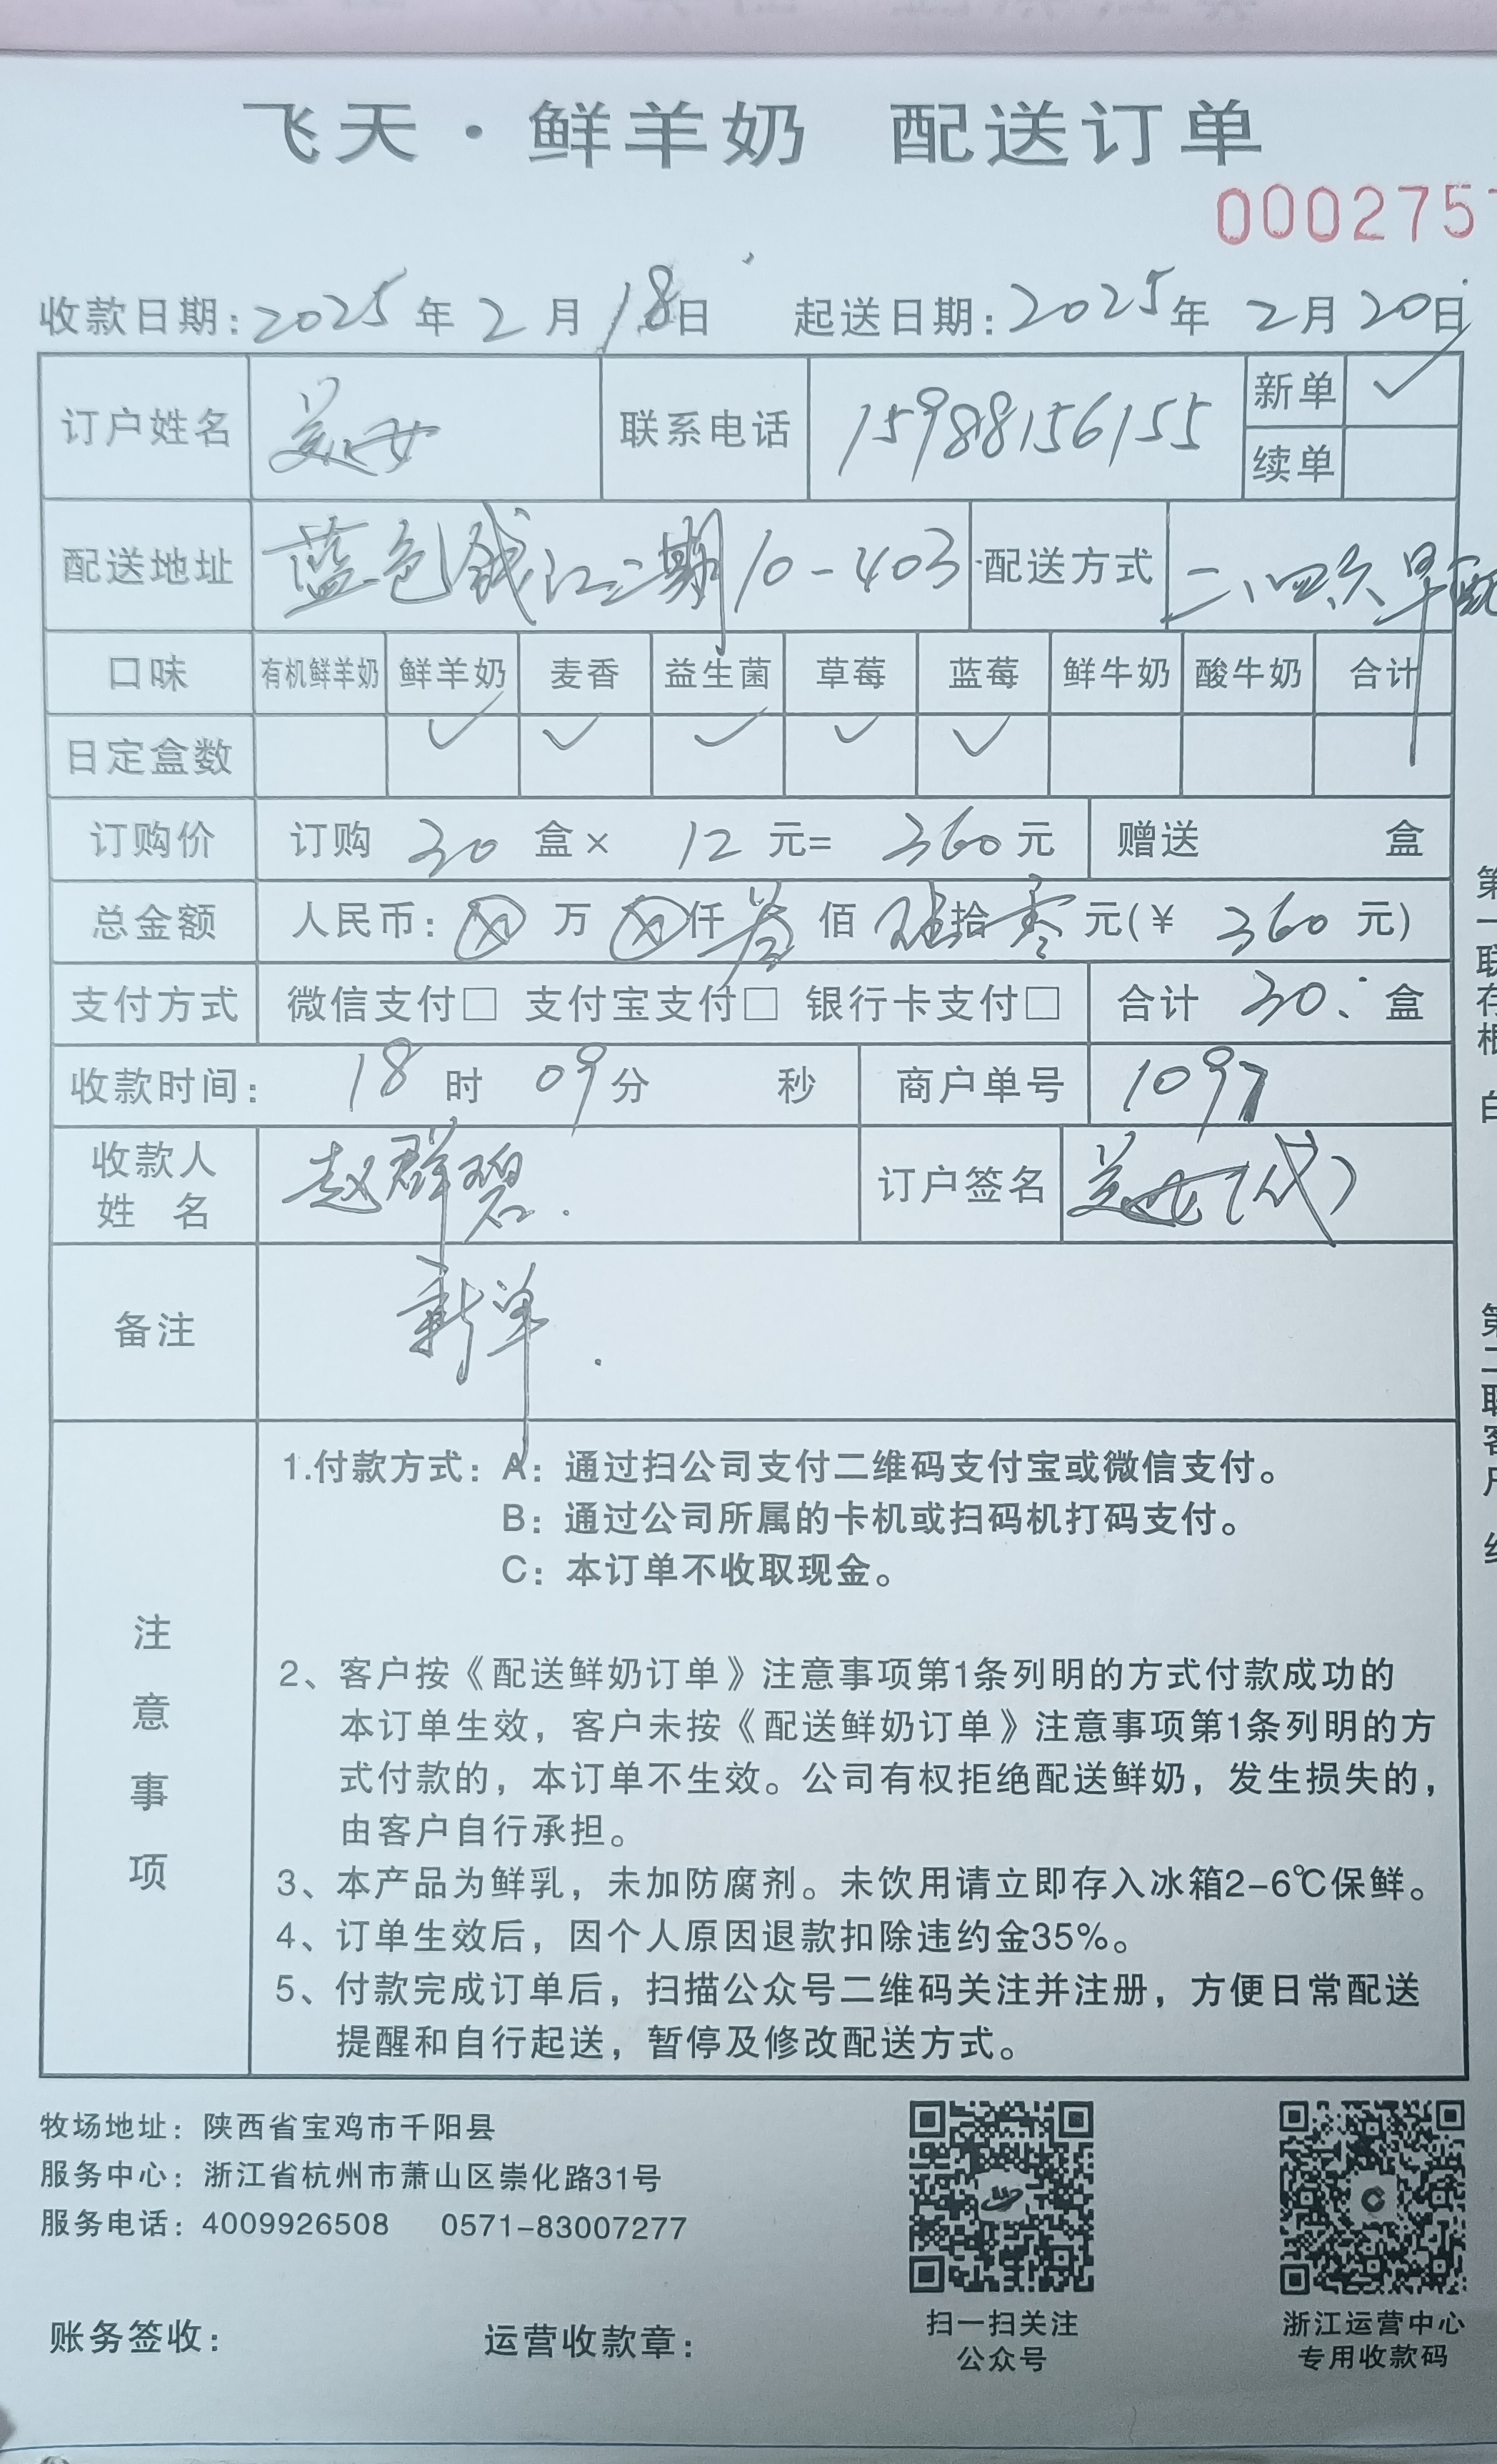 飞天·鲜羊奶 配送订单
000275
收款日期：2025年2月18日 起送日期：2025年2月20日
订户姓名 美女 联系电话 15988156155 新单 ✓
续单
配送地址 蓝色钱江二期10-403 配送方式 二、四、六早配
口味 有机鲜羊奶 鲜羊奶 麦香 益生菌 草莓 蓝莓 鲜牛奶 酸牛奶 合计
日定盒数 ✓ ✓ ✓ ✓ ✓
订购价 订购 30 盒× 12 元= 360元 赠送 盒
总金额 人民币：⊗万⊗仟叁佰陆拾零元(￥ 360 元)
支付方式 微信支付□ 支付宝支付□ 银行卡支付□ 合计 30. 盒
收款时间： 18时 09分 秒 商户单号 1097
收款人姓名 赵群碧. 订户签名 美女(代)
备注 新单.
注意事项
1.付款方式：A：通过扫公司支付二维码支付宝或微信支付。
B：通过公司所属的卡机或扫码机打码支付。
C：本订单不收取现金。
2、客户按《配送鲜奶订单》注意事项第1条列明的方式付款成功的
本订单生效，客户未按《配送鲜奶订单》注意事项第1条列明的方
式付款的，本订单不生效。公司有权拒绝配送鲜奶，发生损失的，
由客户自行承担。
3、本产品为鲜乳，未加防腐剂。未饮用请立即存入冰箱2-6℃保鲜。
4、订单生效后，因个人原因退款扣除违约金35%。
5、付款完成订单后，扫描公众号二维码关注并注册，方便日常配送
提醒和自行起送，暂停及修改配送方式。
第一联存根 白
第二联客户 红
牧场地址：陕西省宝鸡市千阳县
服务中心：浙江省杭州市萧山区崇化路31号
服务电话：4009926508 0571-83007277
账务签收： 运营收款章：
扫一扫关注
公众号
浙江运营中心
专用收款码